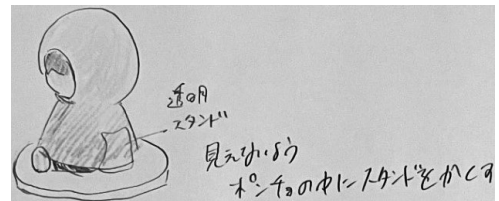 透明
スタンド
見えないよう
ポンチョの中にスタンドをかくす